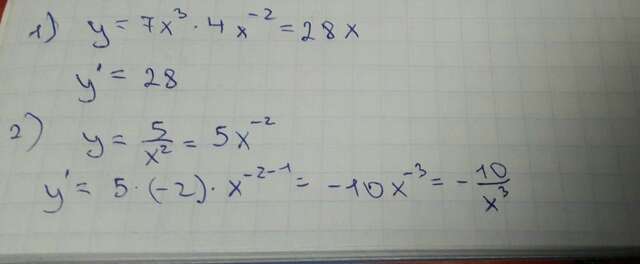 1) y = 7x³ · 4x⁻² = 28x
y' = 28
2) y = 5/x² = 5x⁻²
y' = 5 · (-2) · x⁻²⁻¹ = -10x⁻³ = -10/x³